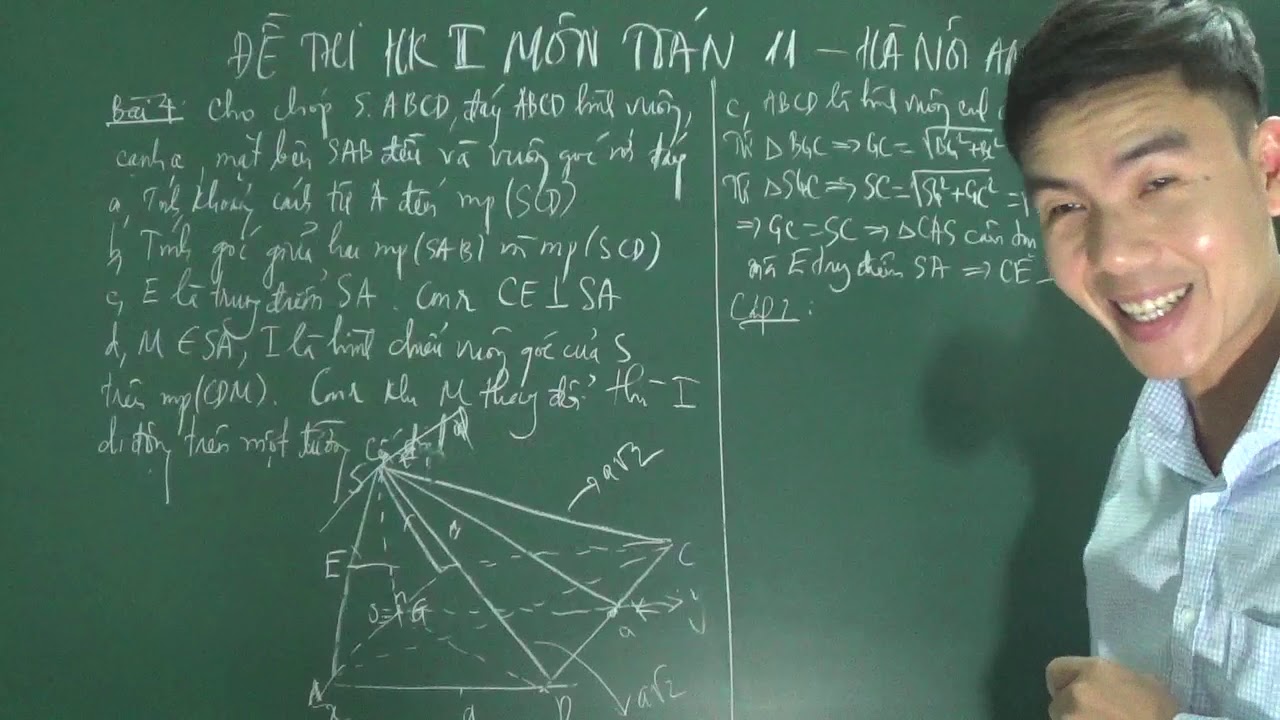 ĐỀ THI HK I MÔN TOÁN 11 – HÀ NỘI
Bài 4: Cho chóp S.ABCD, đáy ABCD hình vuông,
cạnh a, mặt bên SAB đều và vuông góc với đáy
a, Tính khoảng cách từ A đến mp(SCD)
b, Tính góc giữa hai mp(SAB) và mp(SCD)
c, E là trung điểm SA. Cmr CE⊥SA
d, M ∈ SA, I là hình chiếu vuông góc của S
trên mp(CDM). Cmr khi M thay đổi thì I
di động trên một đường
c, ABCD là hình vuông cạnh
Từ △BGC ⇒ GC = √BG²+BC²
Từ △SGC ⇒ SC = √SG²+GC² =
⇒ GC = SC ⇒ △CAS cân
mà E trung điểm SA ⇒ CE
Cáp 2:
S
a√2
B
E
C
G
a
y
A
D
a√2
x
a